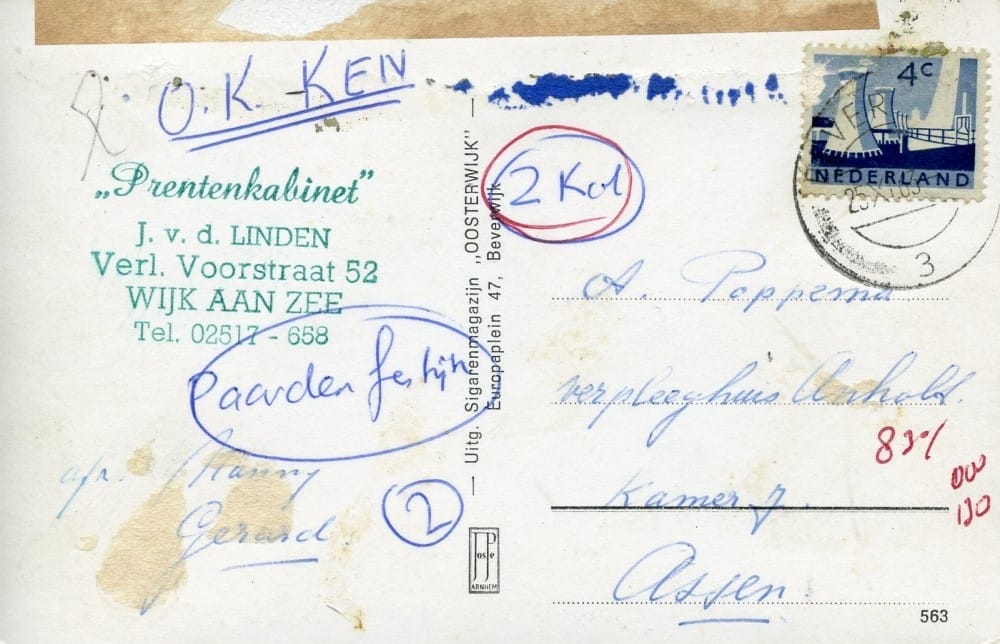 O.K. KEN
„Prentenkabinet”
J. v. d. LINDEN
Verl. Voorstraat 52
WIJK AAN ZEE
Tel. 02517 - 658
Paarden festijn
afz.
Gerard.
2
— Uitg. Sigarenmagazijn „OOSTERWIJK” —
Europaplein 47, Beverwijk
JosPé
ARNHEM
2 Kol
4c
NEDERLAND
VER
3
A. Poppema
verpleeghuis Anholt.
Kamer 7.
Assen
83%
563